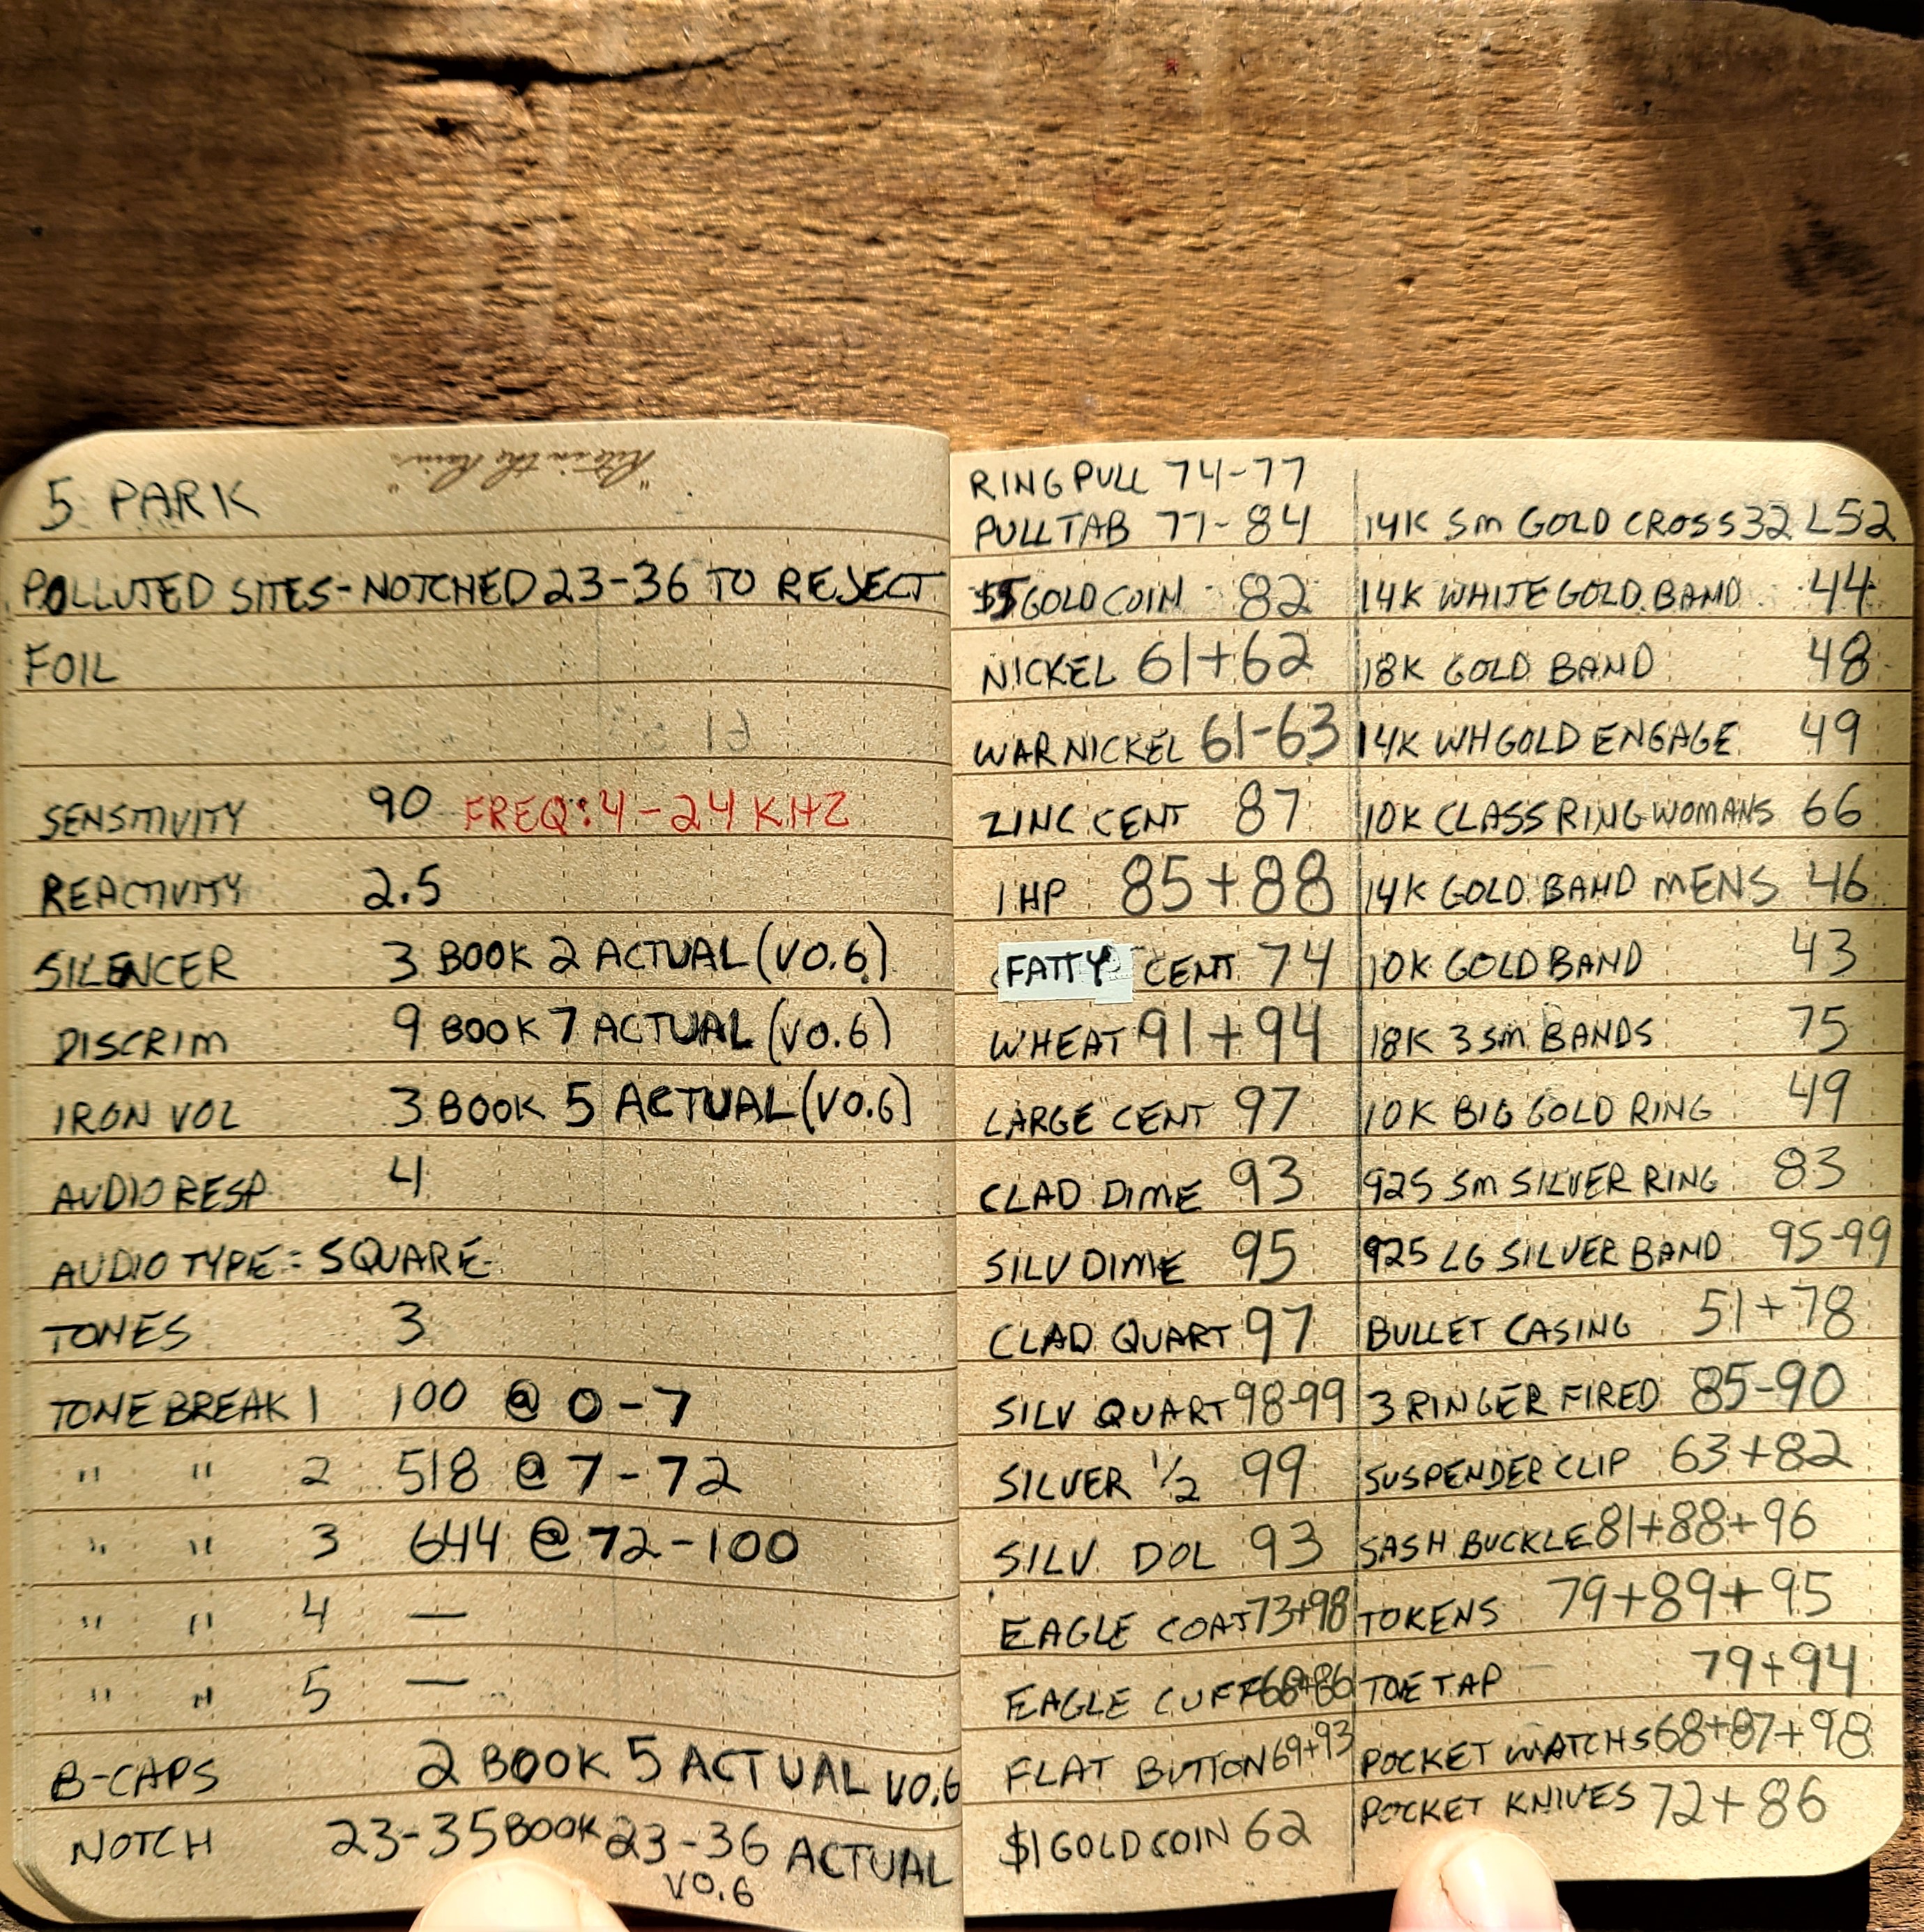 "Rite in the Rain"
5 PARK
POLLUTED SITES - NOTCHED 23-36 TO REJECT
FOIL
SENSITIVITY 90 FREQ: 4-24 KHZ
REACTIVITY 2.5
SILENCER 3 BOOK 2 ACTUAL (V0.6)
DISCRIM 9 BOOK 7 ACTUAL (V0.6)
IRON VOL 3 BOOK 5 ACTUAL (V0.6)
AUDIO RESP. 4
AUDIO TYPE = SQUARE
TONES 3
TONE BREAK 1 100 @ 0-7
" " 2 518 @ 7-72
" " 3 644 @ 72-100
" " 4 —
" " 5 —
B-CAPS 2 BOOK 5 ACTUAL V0.6
NOTCH 23-35 BOOK 23-36 ACTUAL
V0.6
RING PULL 74-77
PULL TAB 77-84
$5 GOLD COIN 82
NICKEL 61+62
WAR NICKEL 61-63
ZINC CENT 87
IHP 85+88
FATTY CENT 74
WHEAT 91+94
LARGE CENT 97
CLAD DIME 93
SILV DIME 95
CLAD QUART 97
SILV QUART 98-99
SILVER 1/2 99
SILV. DOL 93
EAGLE COAT 73+98
EAGLE CUFF 68+86
FLAT BUTTON 69+93
$1 GOLD COIN 62
14K Sm GOLD CROSS 32 L52
14K WHITE GOLD BAND 44
18K GOLD BAND 48
14K WH GOLD ENGAGE 49
10K CLASS RING WOMANS 66
14K GOLD BAND MENS 46
10K GOLD BAND 43
18K 3 sm BANDS 75
10K BIG GOLD RING 49
925 Sm SILVER RING 83
925 LG SILVER BAND 95-99
BULLET CASING 51+78
3 RINGER FIRED 85-90
SUSPENDER CLIP 63+82
SASH BUCKLE 81+88+96
TOKENS 79+89+95
TOE TAP 79+94
POCKET WATCHS 68+87+98
POCKET KNIVES 72+86